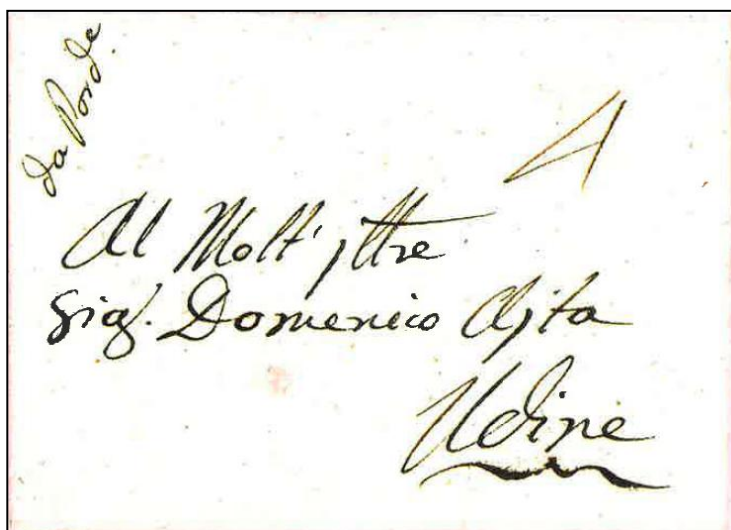 da Pord.e
4
Al Molt'Jltre
Sig.r Domenico Ajta
Udine